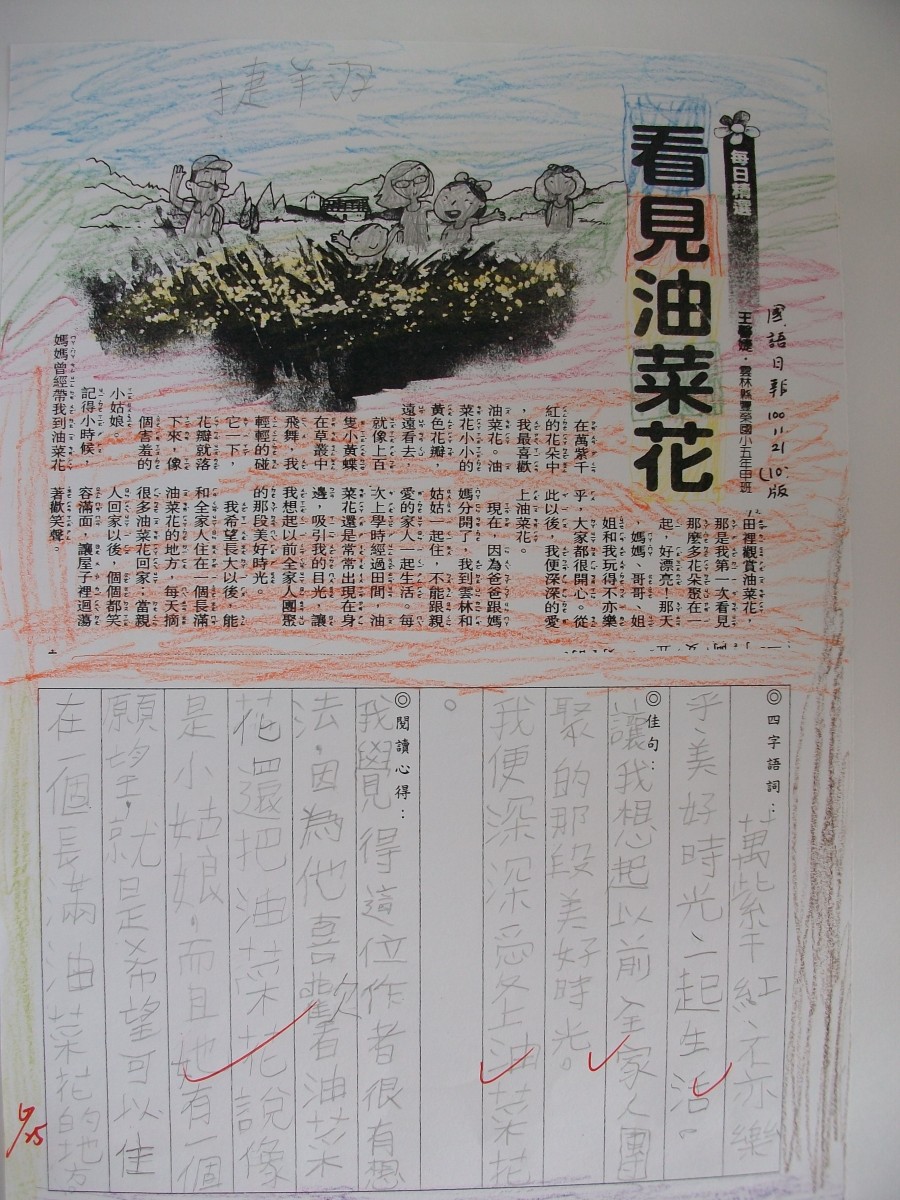 捷羊羽
每日精選
看見油菜花
國語日報 100.11.21 (10版
雲林縣豐榮國小五年甲班
在萬紫千
紅的花朵中
，我最喜歡
油菜花。油
菜花小小的
黃色花瓣，
遠遠看去，
就像上百
隻小黃蝶
在草叢中
飛舞，我
輕輕的碰
它一下，
花瓣就落
下來，像
個害羞的
小姑娘。
記得小時候，
媽媽曾經帶我到油菜花
田裡觀賞油菜花，
那是我第一次看見
那麼多花朵聚在一
起，好漂亮！那天
，媽媽、哥哥、姐
姐和我玩得不亦樂
乎，大家都很開心。從
此以後，我便深深的愛
上油菜花。
現在，因為爸爸跟媽
媽分開了，我到雲林和
姑姑一起住，不能跟親
愛的家人一起生活。每
次上學時經過田間，油
菜花還是常常出現在身
邊，吸引我的目光，讓
我想起以前全家人團聚
的那段美好時光。
我希望長大以後，能
和全家人住在一個長滿
油菜花的地方，每天摘
很多油菜花回家；當親
人回家以後，個個都笑
容滿面，讓屋子裡迴蕩
著歡笑聲。
◎四字語詞：萬紫千紅、不亦樂
乎、美好時光、一起生活。
◎佳句：讓我想起以前全家人團
聚的那段美好時光。
我便深深愛上油菜花
。
◎閱讀心得：我覺得這位作者很有想
法，因為他喜歡看油菜
花還把油菜花說像
是小姑娘，而且她有一個
願望，就是希望可以住
在一個長滿油菜花的地方。